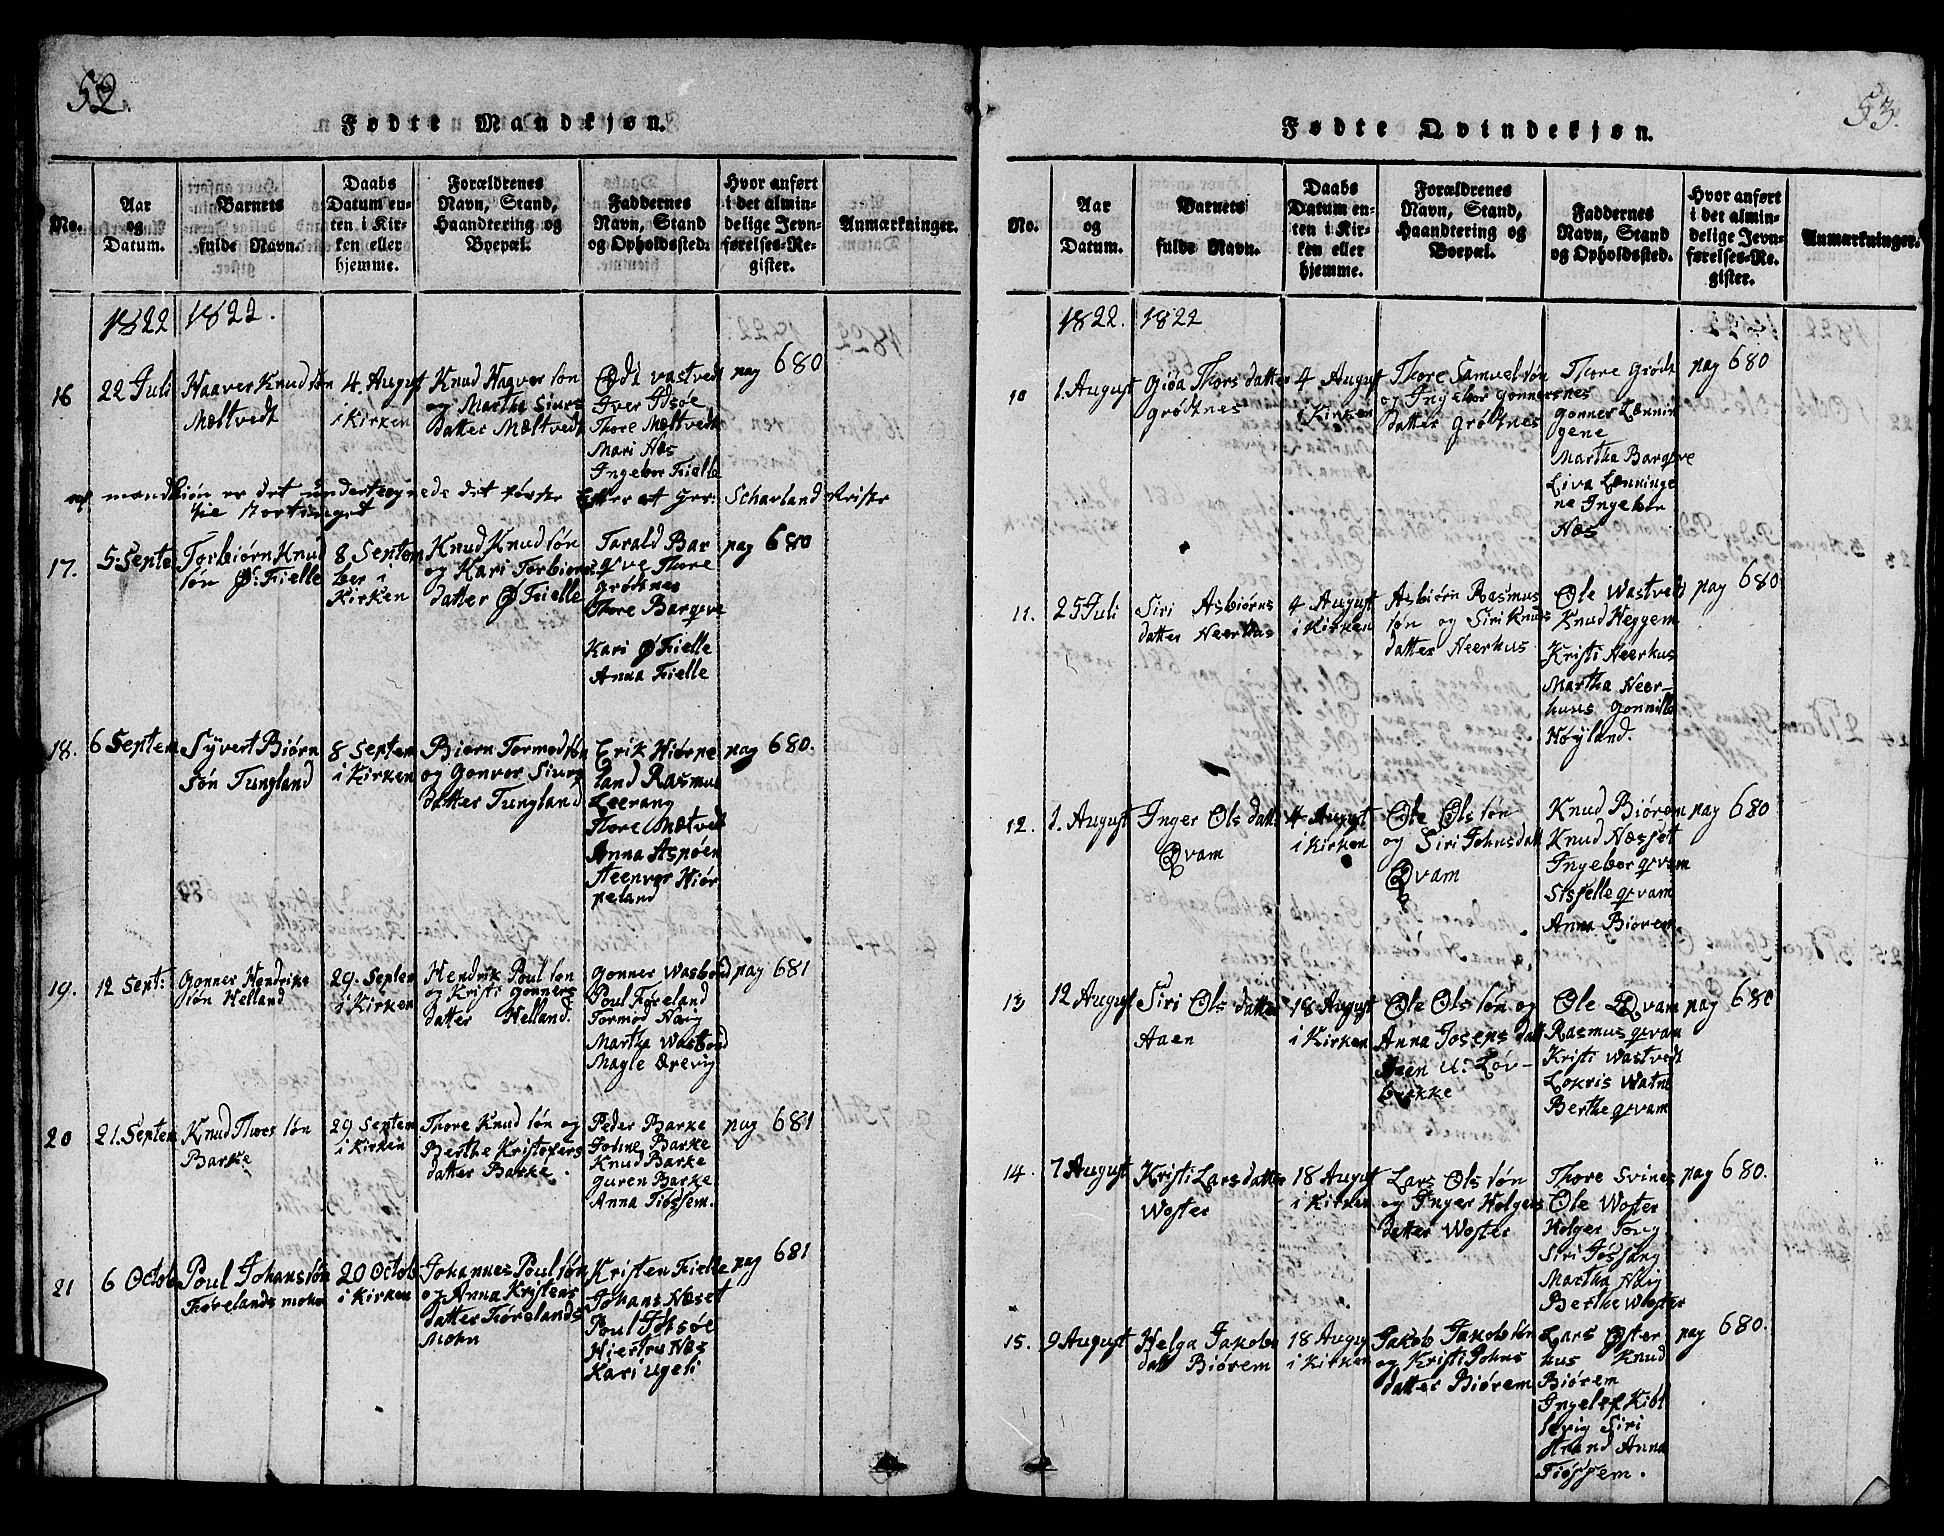 52.
Fødte Mandkjøn.
No.
Aar
og
Datum.
Barnets
fulde Navn.
Daabs
Datum en-
ten i Kir-
ken eller
hjemme.
Forældrenes
Navn, Stand,
Haandtering og
Boepæl.
Faddernes
Navn, Stand
og Opholdssted.
Hvor anført
i det almin-
delige Jevn-
førelses-Re-
gister.
Anmærkninger.
1822 1822.
16
22 Juli
Haaver Knudsøn
Mæltvedt
4. August
i Kirken
Knud Haavorson
og Martha Siurs
datter Mæltvedt
Odt vastvedt
Iver Idsøe
Thore Mæltvedt
Mari Næs
Ingebor Fielle
pag 680
mandkiøn er det undertegnede det første
Scharland
17.
5. Septe
Torbiørn Knud
søn Ø: Fielle
8 Septem
ber i
Kirken
Knud Knudsøn
og Kari Torbiørns
datter Ø Fielle
Tarald Bar
qve Thore
Grødtnes
Thore Barqve
Kari Ø Fielle
Anna Fielle
pag 680
18.
6 Septem
Syvert Biørn
søn Tungland
8 Septem
i Kirken
Biørn Tormodsøn
og Gonvor Siurs
datter Tungland
Erik Hiørpe
land Rasmus
Leerang
Thore Mætvedt
Anna Aspøen
Steenvor Hiør
peland
pag 680.
19.
12 Sept:
Gonner Hendriks
søn Helland
29. Septem
i Kirken
Hendrik Poulsøn
og Kristi Gonners
datter Helland.
Gonner Wasbond
Poul Føreland
Tormod Narig
Martha Wasbond
Magle Ørevig
pag 681
20
21. Septem
Knud Thoressøn
Barke
29 Septem
i Kirken
Thore Knudsøn og
Berthe Kristofers
datter Barke.
Peder Barke
Jorine Barke
Knud Barke
Guren Barke
Anna Fiøssem.
pag 681
21
6 Octob
Poul Johansøn
Førelands mohn
20 Octob
i Kirken
Johannes Poulsøn
og Anna Kristens
datter Førelands
Mohn
Kristen Fielle
Johans Næset
Poul Idsøe
Hiertru Næs
Kari Ugeli
pag 681
53.
Fødte Qvindekjøn.
No.
Aar
og
Datum.
Barnets
fulde Navn.
Daabs
Datum en-
ten i Kir-
ken eller
hjemme.
Forældrenes
Navn, Stand,
Haandtering og
Boepæl.
Faddernes
Navn, Stand
og Opholdssted.
Hvor anført
i det almin-
delige Jevn-
førelses-Re-
gister.
Anmærkninger.
1822. 1822
10
1. August
Giøa Thorsdatter
Grødtnes
4 August
i Kirken
Thore Samuelsøn
og Ingebor Gonners
datter Grødtnes
Thore Grødt
nes
Gonner Lænnin
gene
Martha Barqve
Liva Lænninge
ne Ingebor
Næs
pag 680
11.
25 Juli
Siri Asbiørns
datter Neerhus
4 August
i Kirken
Asbiørn Rasmus
søn og Siri Knuds
datter Neerhus
Ole Wastved
Knud Heggem
Kristi Neerhus
Martha Neer-
huus Gonnille
Høyland.
pag 680
12.
1. August
Inger Ols datter
Qvam
4 August
i Kirken
Ole Olsøn
og Siri Johnsdatt
Qvam
Knud Biørem
Knud Næsset
Ingebor qvam
Sisselle qvam
Anna Biørem.
pag 680
13
12. August
Siri Ols datter
Aaen
18 August
i Kirken
Ole Olssøn og
Anna Joseps datt
Aaen U: Løv-
brække
Ole Qvam
Rasmus qvam
Kristi Wastvedt
Lokris Watne
Berthe qvam
pag 680
14.
7 August
Kristi Larsdatter
Woster
18 August
i Kirken
Lars Olssøn
og Inger Holgers
datter Woster
Thore Svines
Ole Woster
Holger Torg
Siri Jøssang
Martha Narig
Berthe Woster
pag 680.
15.
9 August
Helga Jakobs
datt Biørem
18 August
i Kirken
Jakob Jakobsøn
og Kristi Johns
datter Biørem
Lars Øster
hus Knud
Biørem
Ingelef Kibl
levig Siri
Strand Anna
Fiøssem.
pag 680.